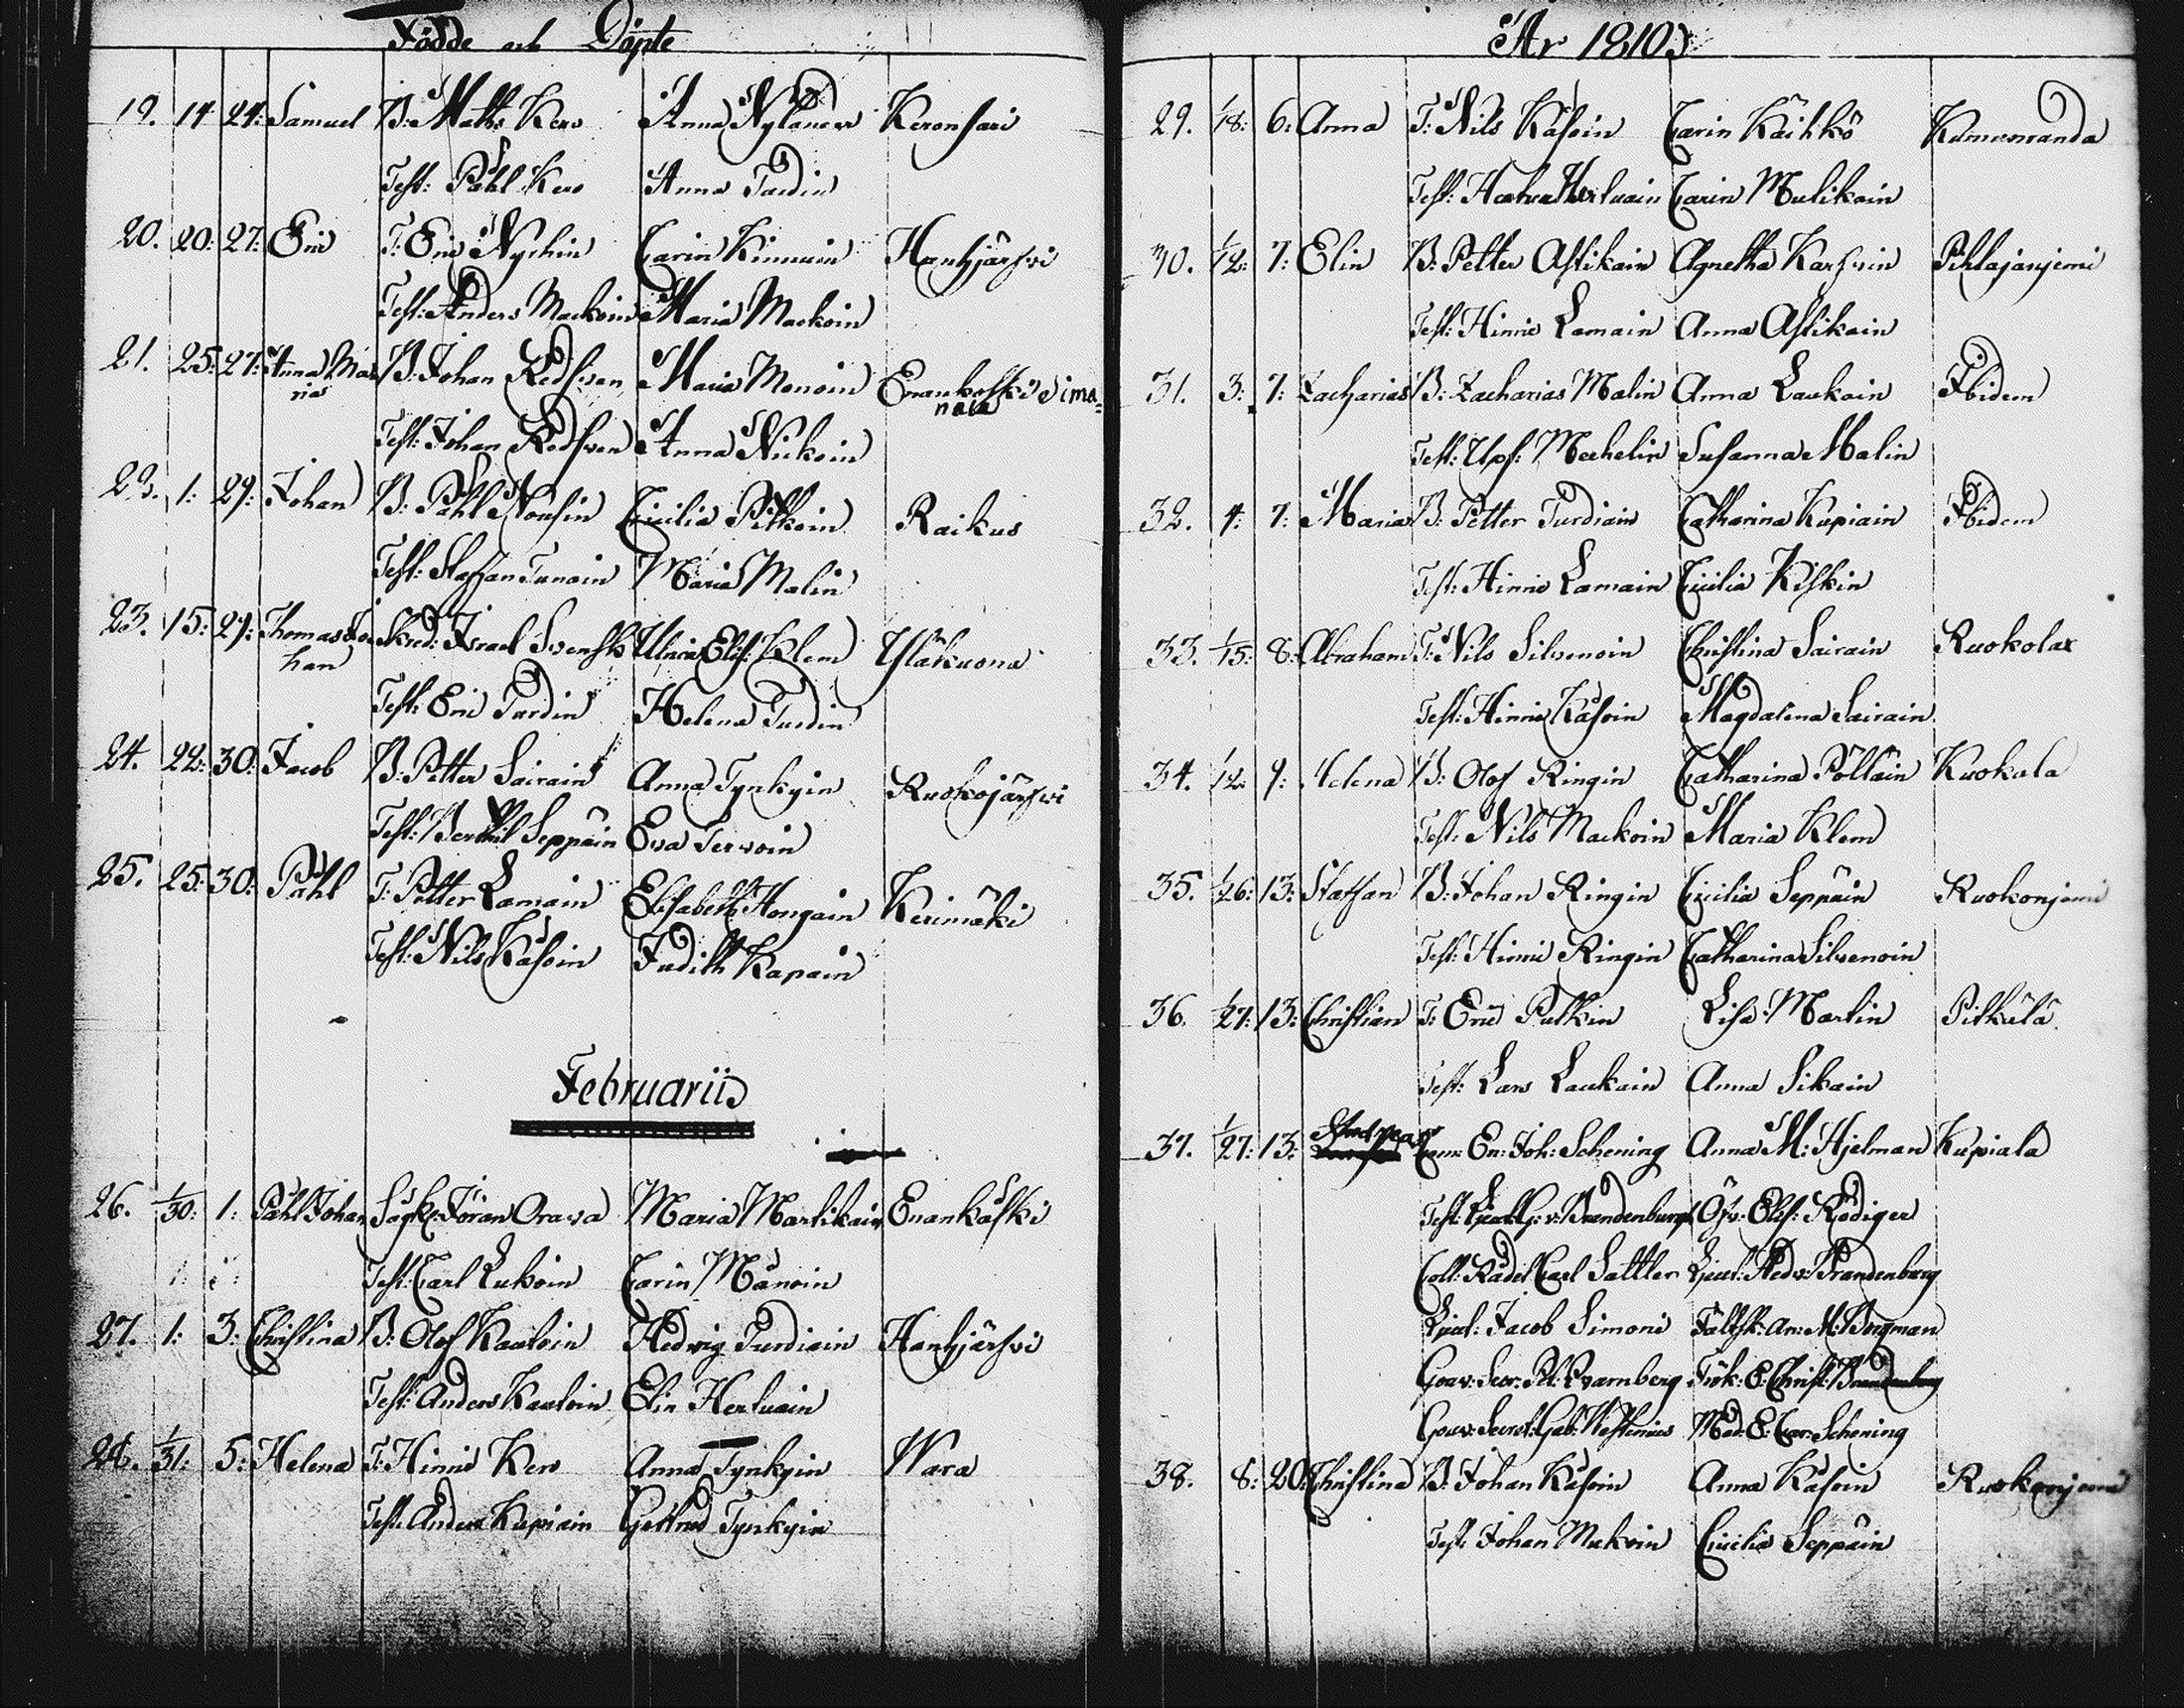 Födde och Döpte
19. 14 24: Samuel B: Matts Kero Anna Nylander Keronsari
Test: Påhl Kero Anna Turdin
20. 20: 27: Eric T: Eric Nychin Carin Kinnuin Hanhijärfvi
Test: Anders Mackoin Maria Mackoin
21. 25: 27: Anna Ma= B: Johan Redsven Maria Monoin Enankoski Sima=
ria niala
Test: Johan Redsven Anna Nickoin
22. 1: 29: Johan B: Påhl Nousin Cicilia Pitkoin Raikus
Test: Staffan Tunoin Maria Malin
23. 15: 29: Thomas Jo Skred: Israel Svensk Ulrica Elis: Klem Yläkuona
han
Test: Eric Turdin Helena Turdin
24. 22: 30: Jacob B: Petter Sairain Anna Tynkyin Ruokojärfvi
Test: Berthil Seppäin Eva Tervoin
25. 25: 30: Påhl T: Petter Lamain Elisabeth Hongain Kerimäki
Test: Nils Käsoin Judith Kapain
Februarii
26. 1/30: 1: Påhl Johan Sågk: Jöran Orava Maria Martikain Enankoski
Test: Carl Lukoin Carin Mänoin
27. 1: 3: Christina B: Olof Kauloin Hedvig Turdiain Hanhijärfvi
Test: Anders Kauloin Elin Herluain
28. 1/31: 5: Helena T: Hinric Kero Anna Tynkyin Wara
Test: Anders Kupiain Gertrud Tynkyin
År 1810
29. 1/18: 6: Anna T: Nils Käsoin Carin Käihkö Kumuranda
Test: Herluain Carin Mulikain
30. 1/12: 7: Elin B: Petter Astikain Agnetha Karfvin Pihlajanjemi
Test: Hinric Lamain Anna Astikain
31. 3: 7: Zacharias B: Zacharias Malin Anna Laukain Ibidem
Test: Ups: Mechelin Susanna Malin
32. 4: 7: Maria B: Petter Turdiain Catharina Kupiain Ibidem
Test: Hinric Lamain Cicilia Kiskin
33. 1/15: 8: Abraham T: Nils Silvenoin Christina Sairain Ruokolax
Test: Hinric Käsoin Magdalena Sairain
34. 1/12: 9: Helena B: Olof Ringin Catharina Pölläin Kuokala
Test: Nils Mackoin Maria Klem
35. 1/26: 13: Staffan B: Johan Ringin Cicilia Seppäin Ruokonjemi
Test: Hinric Ringin Catharina Silvenoin
36. 1/27: 13: Christian T: Eric Putkin Lisa Martin Pitkälä
Test: Lars Laukain Anna Sikain
37. 1/27: 13: Andreas En: Joh: Schening Anna M: Hjelman Kupiala
Test: G: v: Brandenburg Öfv: Elis: Rödiger
Coll: Rådet Carl Sattler Lieut: Hedv: Brandenburg
Lieut: Jacob Simoni Fältsk: An: M: Bergman
Gouv: Secr: Pet: Qvarnberg Frök: E: Christ: Brandenburg
Gouv: Secret: Gab: Westenius Mad: E: Car: Schening
38. 8: 20: Christina B: Johan Käsoin Anna Käsoin Ruokonjemi
Test: Johan Muckoin Cicilia Seppäin